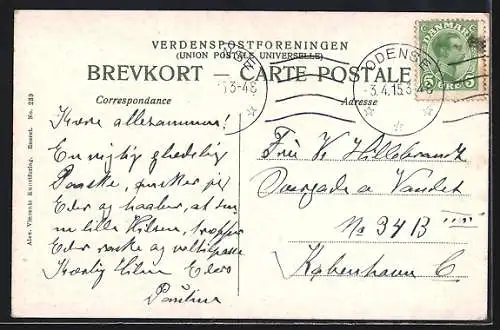 VERDENSPOSTFORENINGEN
(UNION POSTALE UNIVERSELLE)
BREVKORT — CARTE POSTALE
Correspondance
Adresse
ODENSE
3.4.15.3-4 S
3-4 S
DANMARK
5 ØRE 5
Alex. Vincents Kunstforlag. Eneret. No. 239
Kære allesammen!
En rigtig glædelig
Paaske, ønsker jeg
Eder og haaber, at
lille Hilsen, træffer
Eder raske og veltilpasse
Kærlig Hilsen Eders
Pauline
Fru V. Hillebrandt
Overgade o Vandet
No 34 B
København C